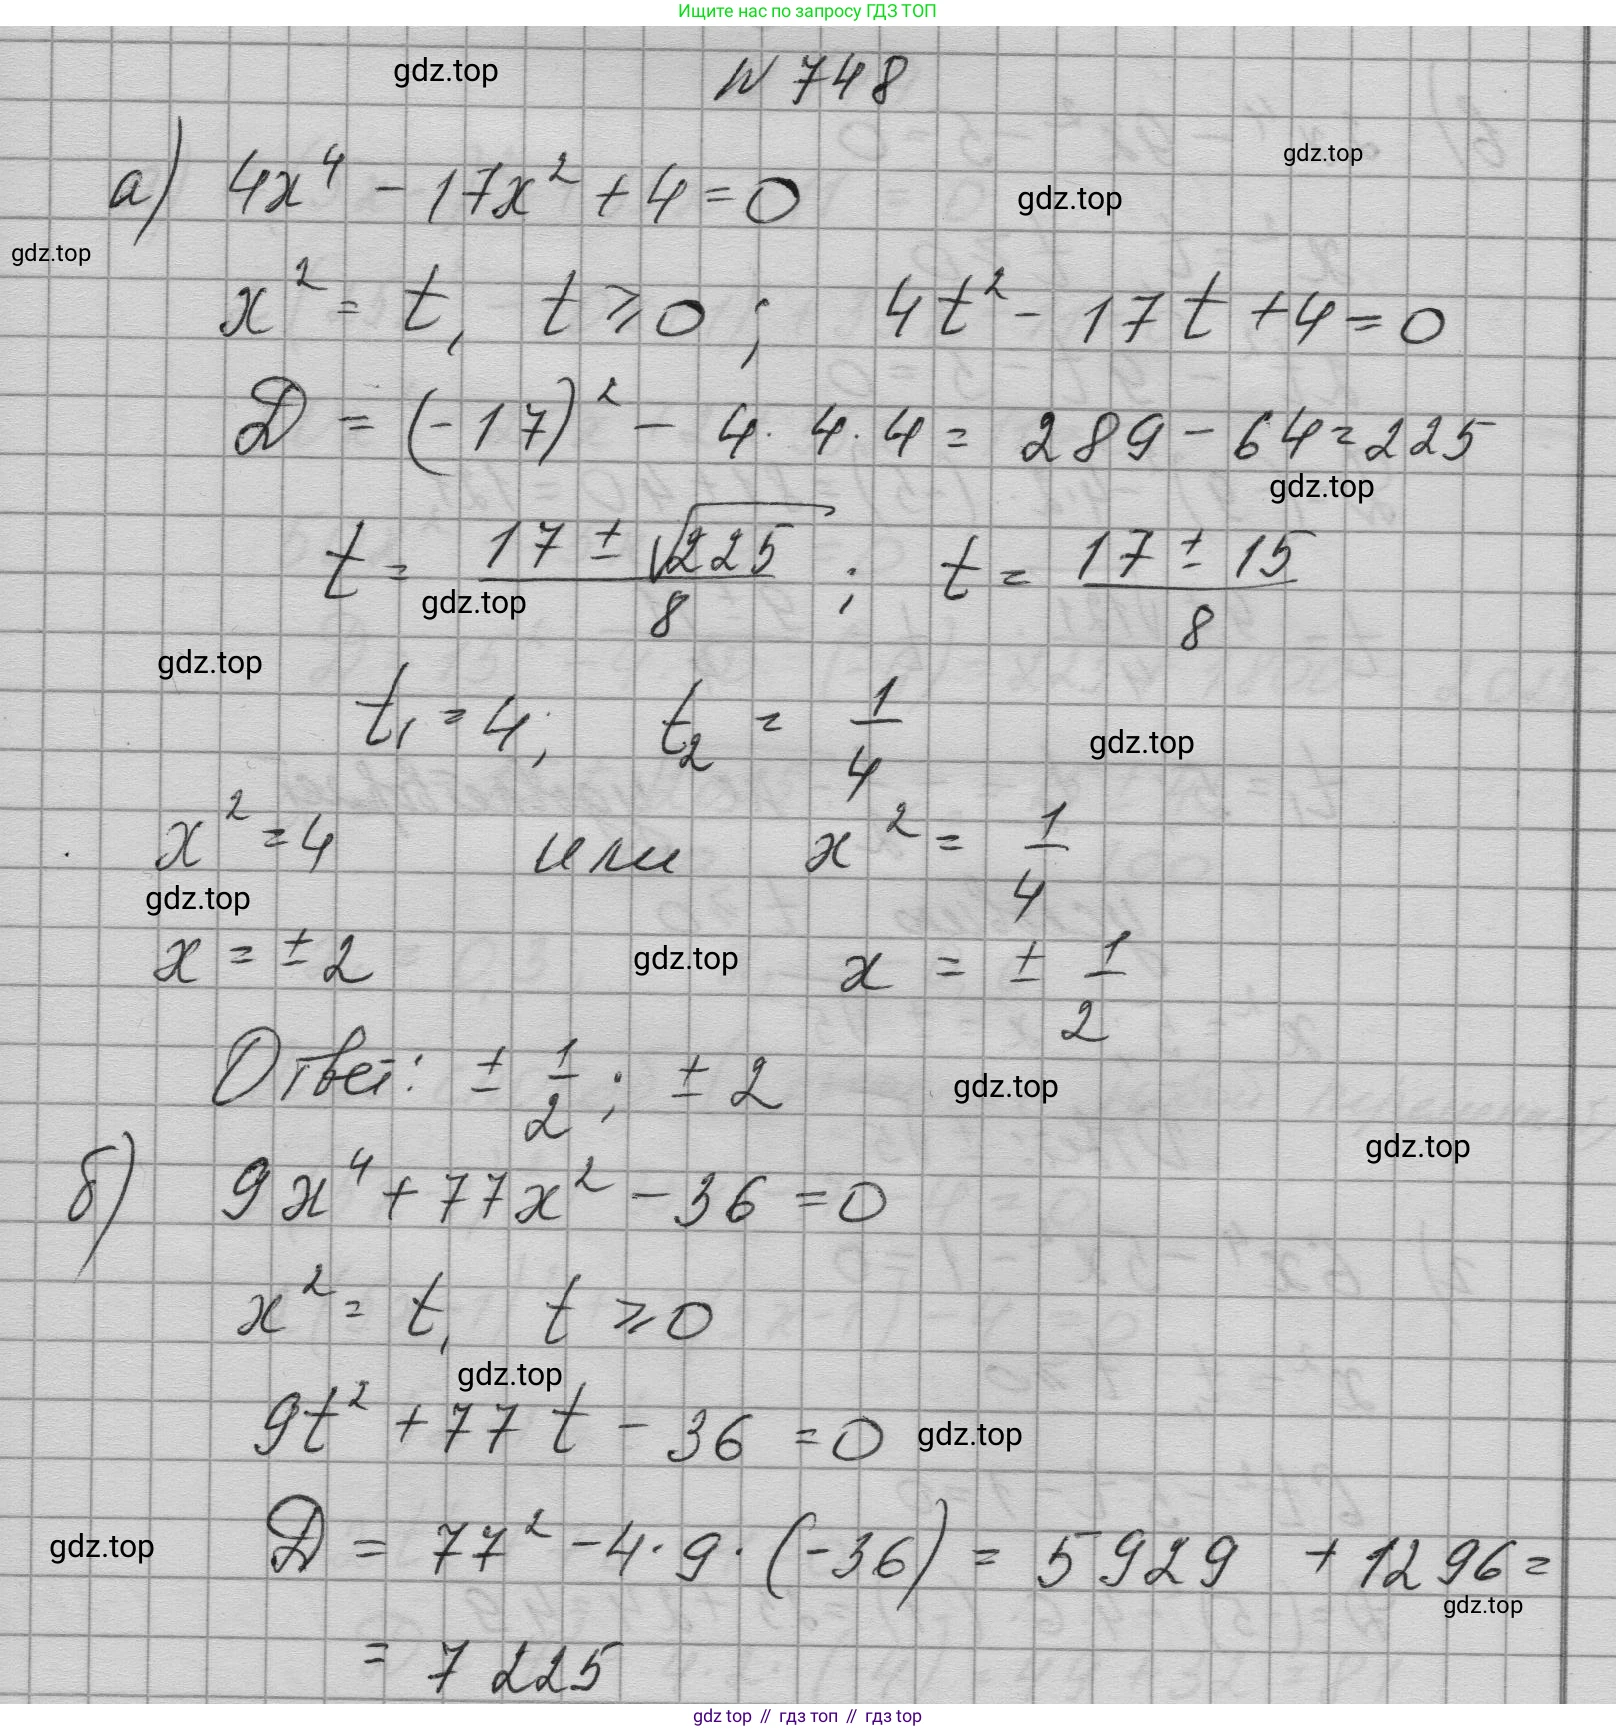 Ищите нас по запросу ГДЗ ТОП
gdz.top
N 748
а) 4x⁴ - 17x² + 4 = 0
gdz.top
gdz.top
gdz.top
x² = t, t ⩾ 0; 4t² - 17t + 4 = 0
D = (-17)² - 4·4·4 = 289 - 64 = 225
gdz.top
t = (17 ± √225)/8; t = (17 ± 15)/8
gdz.top
gdz.top
t₁ = 4; t₂ = 1/4
gdz.top
x² = 4 или x² = 1/4
gdz.top
x = ± 2 x = ± 1/2
gdz.top
Ответ: ± 1/2; ± 2
gdz.top
gdz.top
б) 9x⁴ + 77x² - 36 = 0
x² = t, t ⩾ 0
gdz.top
9t² + 77t - 36 = 0
gdz.top
gdz.top
D = 77² - 4·9·(-36) = 5929 + 1296 =
gdz.top
= 7225
gdz top // гдз топ // гдз top